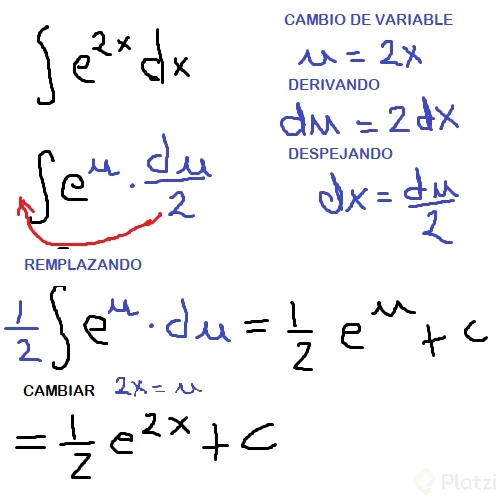 ∫ e^{2x} dx
CAMBIO DE VARIABLE
u = 2x
DERIVANDO
du = 2dx
DESPEJANDO
dx = du/2
∫ e^u · du/2
REMPLAZANDO
1/2 ∫ e^u · du = 1/2 e^u + c
CAMBIAR 2x = u
= 1/2 e^{2x} + C
Platzi